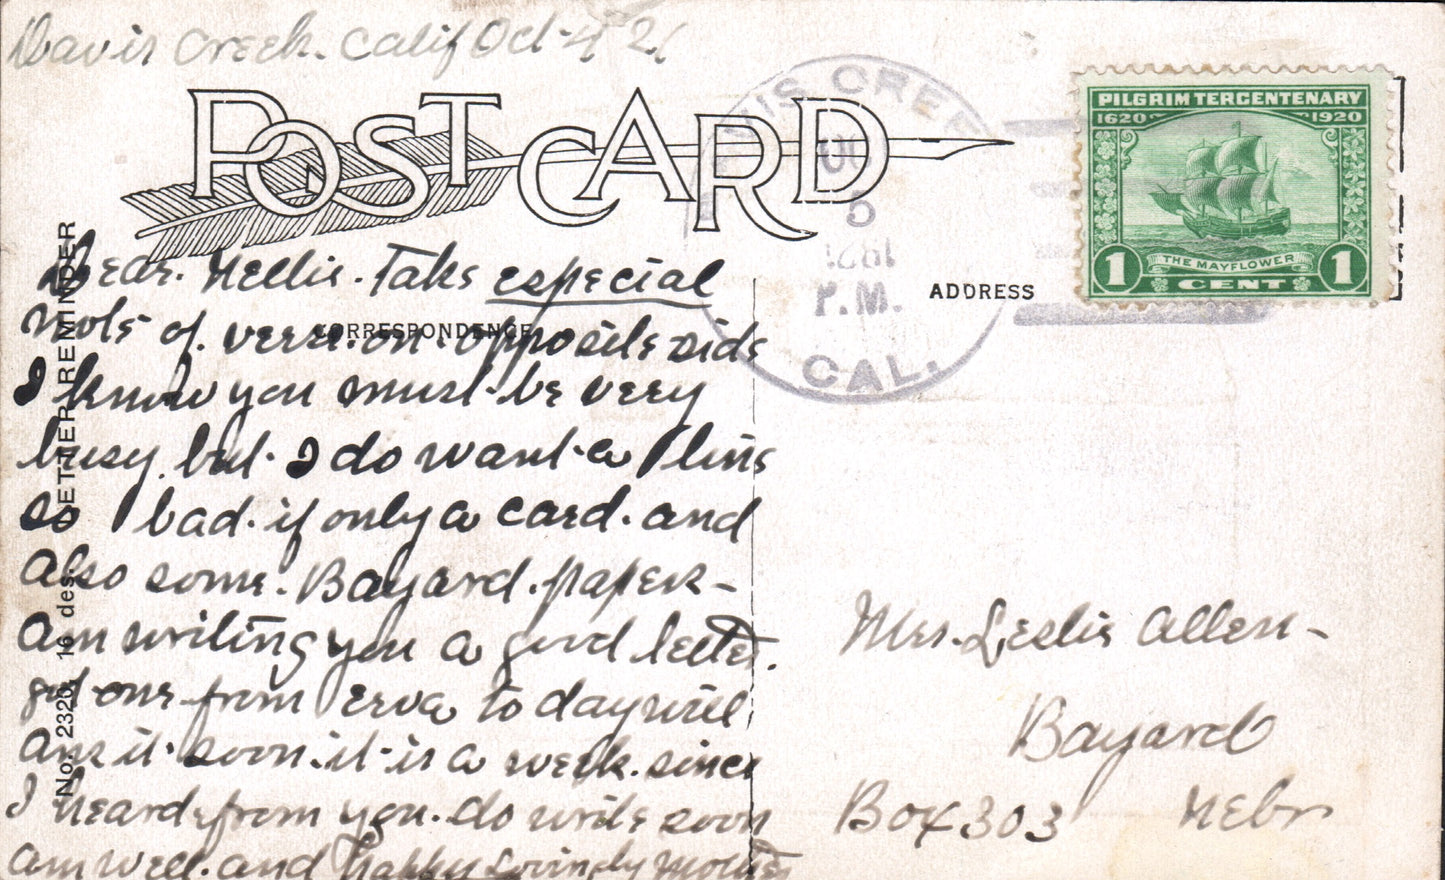 Davis Creek. Calif Oct 4 21
POST CARD
DAVIS CREEK
OC
5
P.M.
CAL.
PILGRIM TERCENTENARY
1620 1920
THE MAYFLOWER
1 CENT 1
ADDRESS
CORRESPONDENCE
No. 2320, 16 des. LETTER REMINDER
Dear. Nellie. Take especial
note of. verse. on. opposite side
I know you must be very
busy. but. I do want a line
so bad. if only a card. and
also some. Bayard. paper -
am writing you a good letter.
got one from Erva to day will
ans it. soon. it is a week. since
I heard from you. do write soon
am well. and happy Lovingly Mother
Mrs. Leslie Allen -
Bayard
Box 303 Nebr